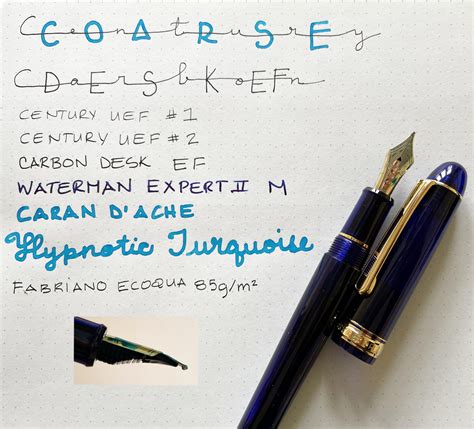 Century COARSE
Carbon DESK EF
CENTURY UEF #1
CENTURY UEF #2
CARBON DESK EF
WATERMAN EXPERT II M
CARAN D'ACHE
Hypnotic Turquoise
FABRIANO ECOQUA 85g/m²